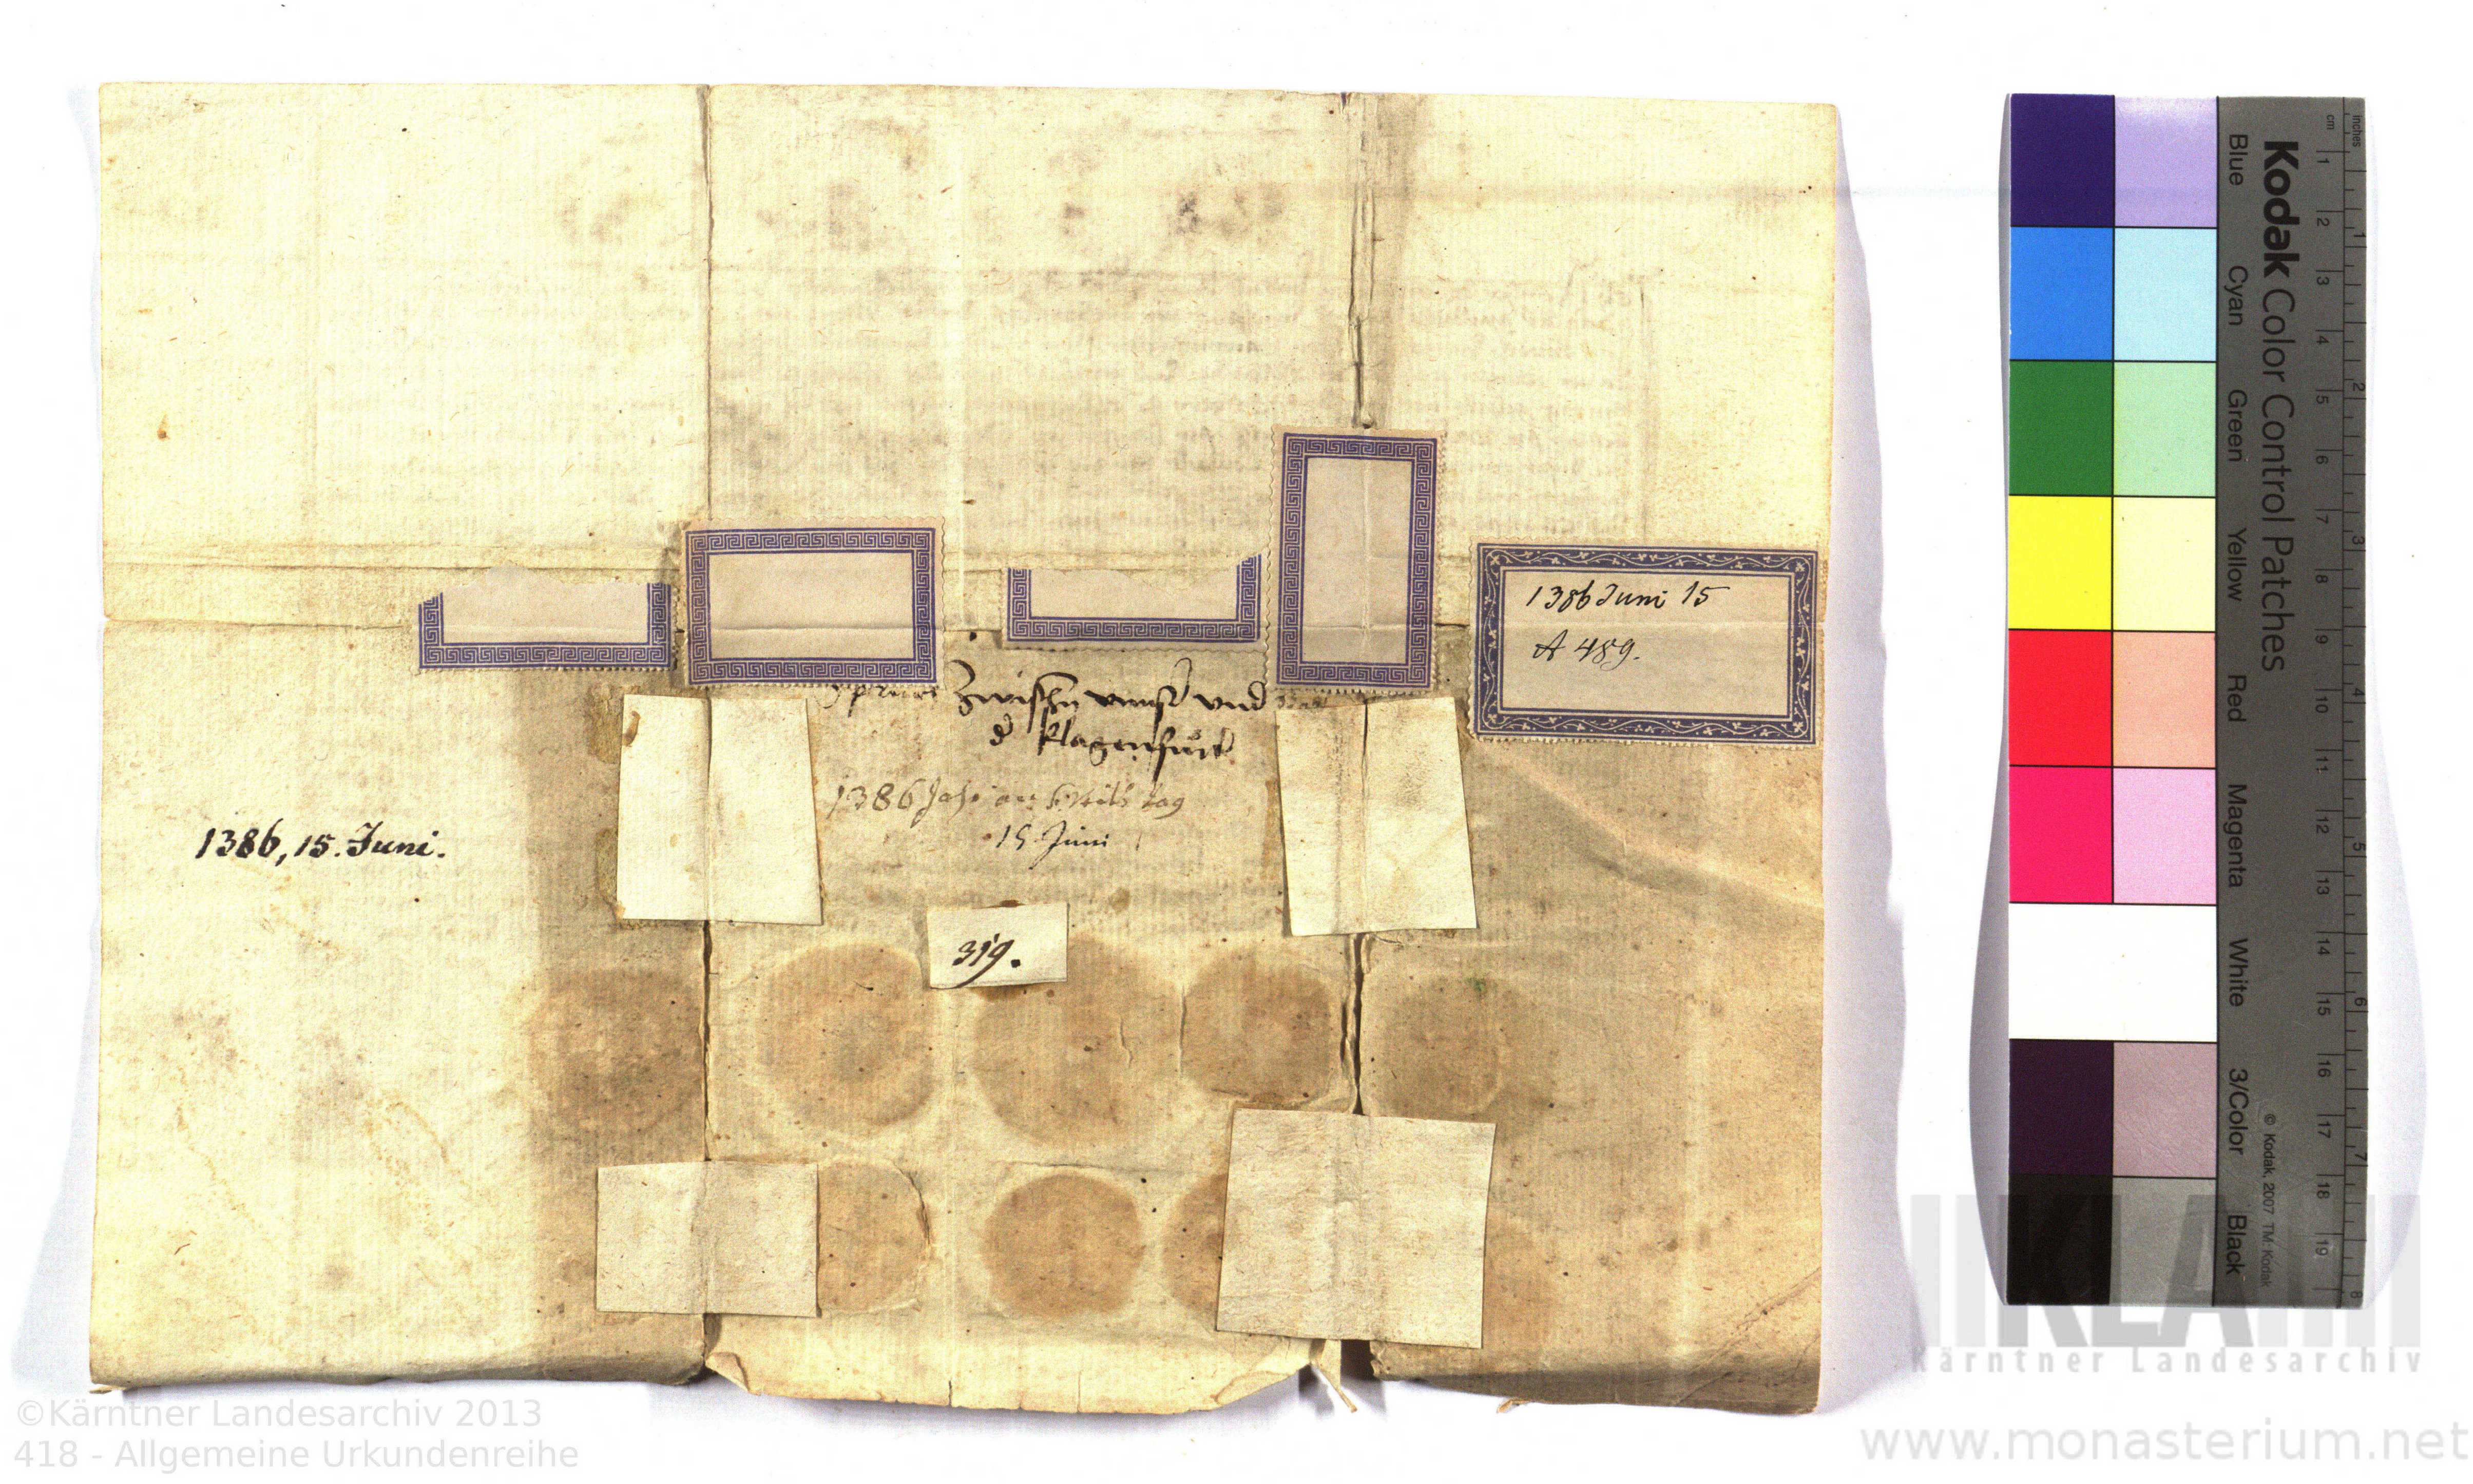 1386 Juni 15
A 489.
Zwischn vnns vnd
d klagenfurt
1386 Jahr an s. Veits tag
15 Juni
1386, 15. Juni.
319.
Kodak Color Control Patches
Blue Cyan Green Yellow Red Magenta White 3/Color Black
© Kodak, 2007 TM: Kodak
cm 1 2 3 4 5 6 7 8 9 10 11 12 13 14 15 16 17 18 19
inches 1 2 3 4 5 6 7 8
KLA
Kärntner Landesarchiv
©Kärntner Landesarchiv 2013
418 - Allgemeine Urkundenreihe
www.monasterium.net